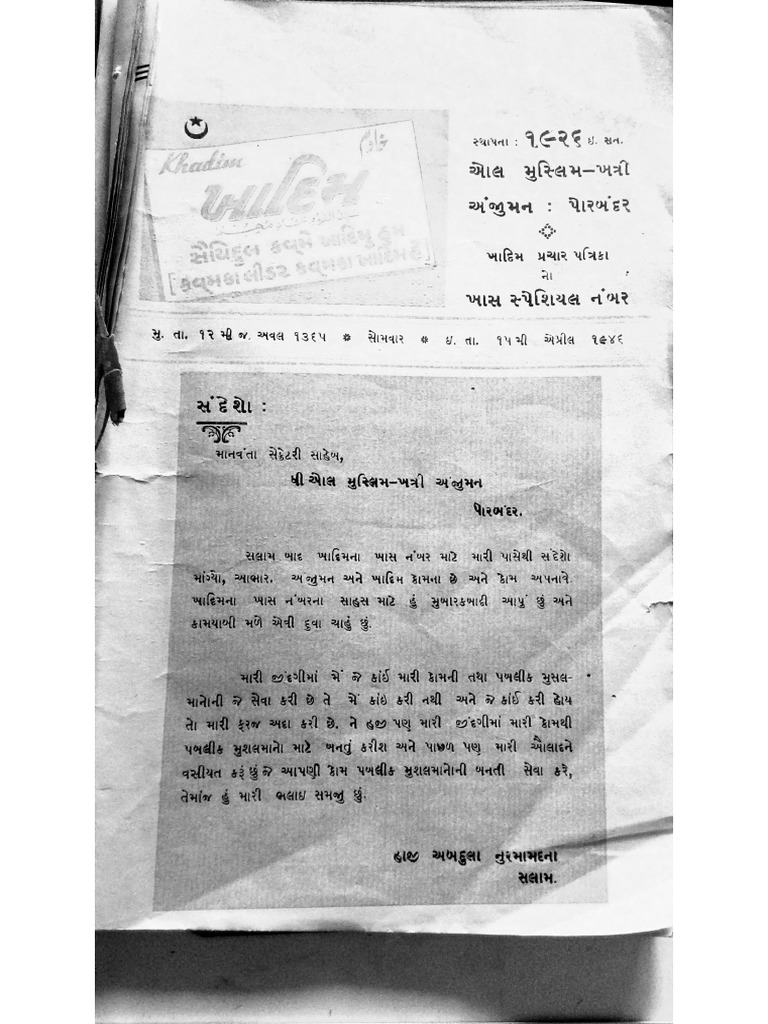 Khadim
خادم
ખાદિમ
سيد القوم خادمهم
સૈયિદુલ કવ્મે ખાદિમુ હુમ
[કવ્મકા લીડર કવ્મકા ખાદિમ હૈ]
સ્થાપના : ૧૯૨૬ ઇ. સન.
એાલ મુસ્લિમ–ખત્રી
અંજુમન : પોરબંદર
ખાદિમ પ્રચાર પત્રિકા
નેા
ખાસ સ્પેશિયલ નંબર
મુ. તા. ૧૨ મી જ. અવલ ૧૩૬૫ * સોમવાર * ઇ. તા. ૧૫ મી એપ્રીલ ૧૯૪૬
સંદેશેા :
માનવંતા સેક્રેટરી સાહેબ,
ધી એાલ મુસ્લિમ–ખત્રી અંજુમન
પોરબંદર.
સલામ બાદ ખાદિમના ખાસ નંબર માટે મારી પાસેથી સંદેશેા
માંગ્યો, આભાર. અંજુમન અને ખાદિમ કોમના છે અને કોમ અપનાવે.
ખાદિમના ખાસ નંબરના સાહસ માટે હું મુબારકબાદી આપું છું અને
કામયાબી મળે એવી દુવા ચાહું છું.
મારી જીંદગીમાં મેં જે કાંઈ મારી કોમની તથા પબલીક મુસલ-
માનોની જે સેવા કરી છે તે મેં કાંઇ કરી નથી અને જે કાંઈ કરી હોય
તો મારી ફરજ અદા કરી છે. ને હજી પણ મારી જીંદગીમાં મારી કોમથી
પબલીક મુશલમાનો માટે બનતું કરીશ અને પાછળ પણ મારી ઔલાદને
વસીયત કરૂં છું જે આપણી કોમ પબલીક મુશલમાનોની બનતી સેવા કરે,
તેમાંજ હું મારી ભલાઇ સમજુ છું.
હાજી અબદુલા નુરમામદના
સલામ.